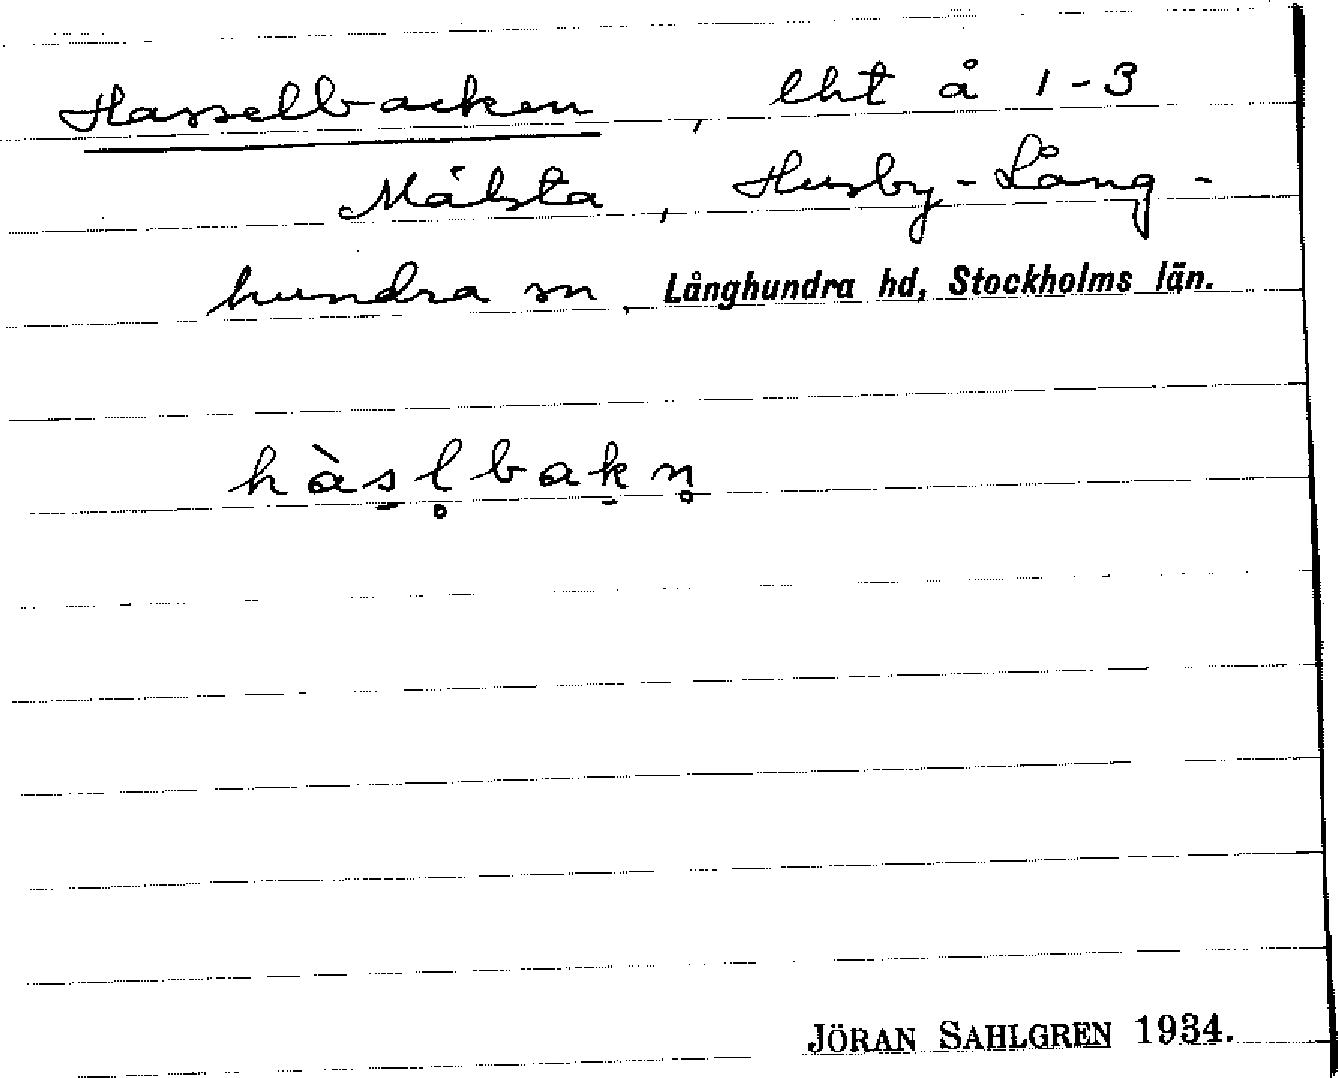 Hasselbacken, lht å 1-3
Målsta, Husby-Lång-
hundra sn, Långhundra hd, Stockholms län.
hàs̠l̥bak̠n̥
JÖRAN SAHLGREN 1934.